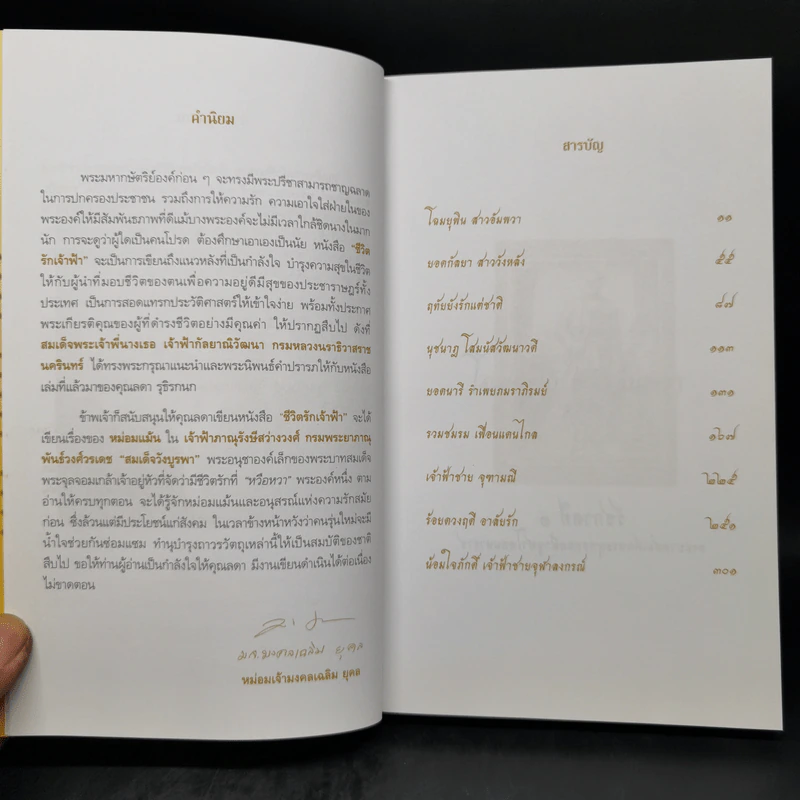 คำนิยม
พระมหากษัตริย์องค์ก่อน ๆ จะทรงมีพระปรีชาสามารถชาญฉลาด
ในการปกครองประชาชน รวมถึงการให้ความรัก ความเอาใจใส่ฝ่ายในของ
พระองค์ให้มีสัมพันธภาพที่ดีแม้บางพระองค์จะไม่มีเวลาใกล้ชิดนางในมาก
นัก การจะดูว่าผู้ใดเป็นคนโปรด ต้องศึกษาเอาเองเป็นนัย หนังสือ "ชีวิต
รักเจ้าฟ้า" จะเป็นการเขียนถึงแนวหลังที่เป็นกำลังใจ บำรุงความสุขในชีวิต
ให้กับผู้นำที่มอบชีวิตของตนเพื่อความอยู่ดีมีสุขของประชาราษฎร์ทั้ง
ประเทศ เป็นการสอดแทรกประวัติศาสตร์ให้เข้าใจง่าย พร้อมทั้งประกาศ
พระเกียรติคุณของผู้ที่ดำรงชีวิตอย่างมีคุณค่า ให้ปรากฏสืบไป ดังที่
สมเด็จพระเจ้าพี่นางเธอ เจ้าฟ้ากัลยาณิวัฒนา กรมหลวงนราธิวาสราช
นครินทร์ ได้ทรงพระกรุณาแนะนำและพระนิพนธ์คำปรารภให้กับหนังสือ
เล่มที่แล้วมาของคุณลดา รุธิรกนก
ข้าพเจ้าก็สนับสนุนให้คุณลดาเขียนหนังสือ "ชีวิตรักเจ้าฟ้า" จะได้
เขียนเรื่องของ หม่อมแม้น ใน เจ้าฟ้าภาณุรังษีสว่างวงศ์ กรมพระยาภาณุ
พันธ์วงศ์วรเดช "สมเด็จวังบูรพา" พระอนุชาองค์เล็กของพระบาทสมเด็จ
พระจุลจอมเกล้าเจ้าอยู่หัวที่จัดว่ามีชีวิตรักที่ "หวือหวา" พระองค์หนึ่ง ตาม
อ่านให้ครบทุกตอน จะได้รู้จักหม่อมแม้นและอนุสรณ์แห่งความรักสมัย
ก่อน ซึ่งล้วนแต่มีประโยชน์แก่สังคม ในเวลาข้างหน้าหวังว่าคนรุ่นใหม่จะมี
น้ำใจช่วยกันซ่อมแซม ทำนุบำรุงถาวรวัตถุเหล่านี้ให้เป็นสมบัติของชาติ
สืบไป ขอให้ท่านผู้อ่านเป็นกำลังใจให้คุณลดา มีงานเขียนดำเนินได้ต่อเนื่อง
ไม่ขาดตอน
ม.จ.มงคลเฉลิม ยุคล
หม่อมเจ้ามงคลเฉลิม ยุคล
สารบัญ
โฉมยุพิน สาวอัมพวา ๑๑
ยอดกัลยา สาววังหลัง ๕๕
ฤทัยยังรักแต่ชาติ ๘๗
นุชนาฏ โสมนัสวัฒนาวดี ๑๑๓
ยอดนารี รำเพยภมราภิรมย์ ๑๓๑
รวมชมรม เพื่อนแดนไกล ๑๖๗
เจ้าฟ้าชาย จุฑามณี ๒๒๕
ร้อยดวงฤดี อาลัยรัก ๒๕๑
น้อมใจภักดิ์ เจ้าฟ้าชายจุฬาลงกรณ์ ๓๐๑